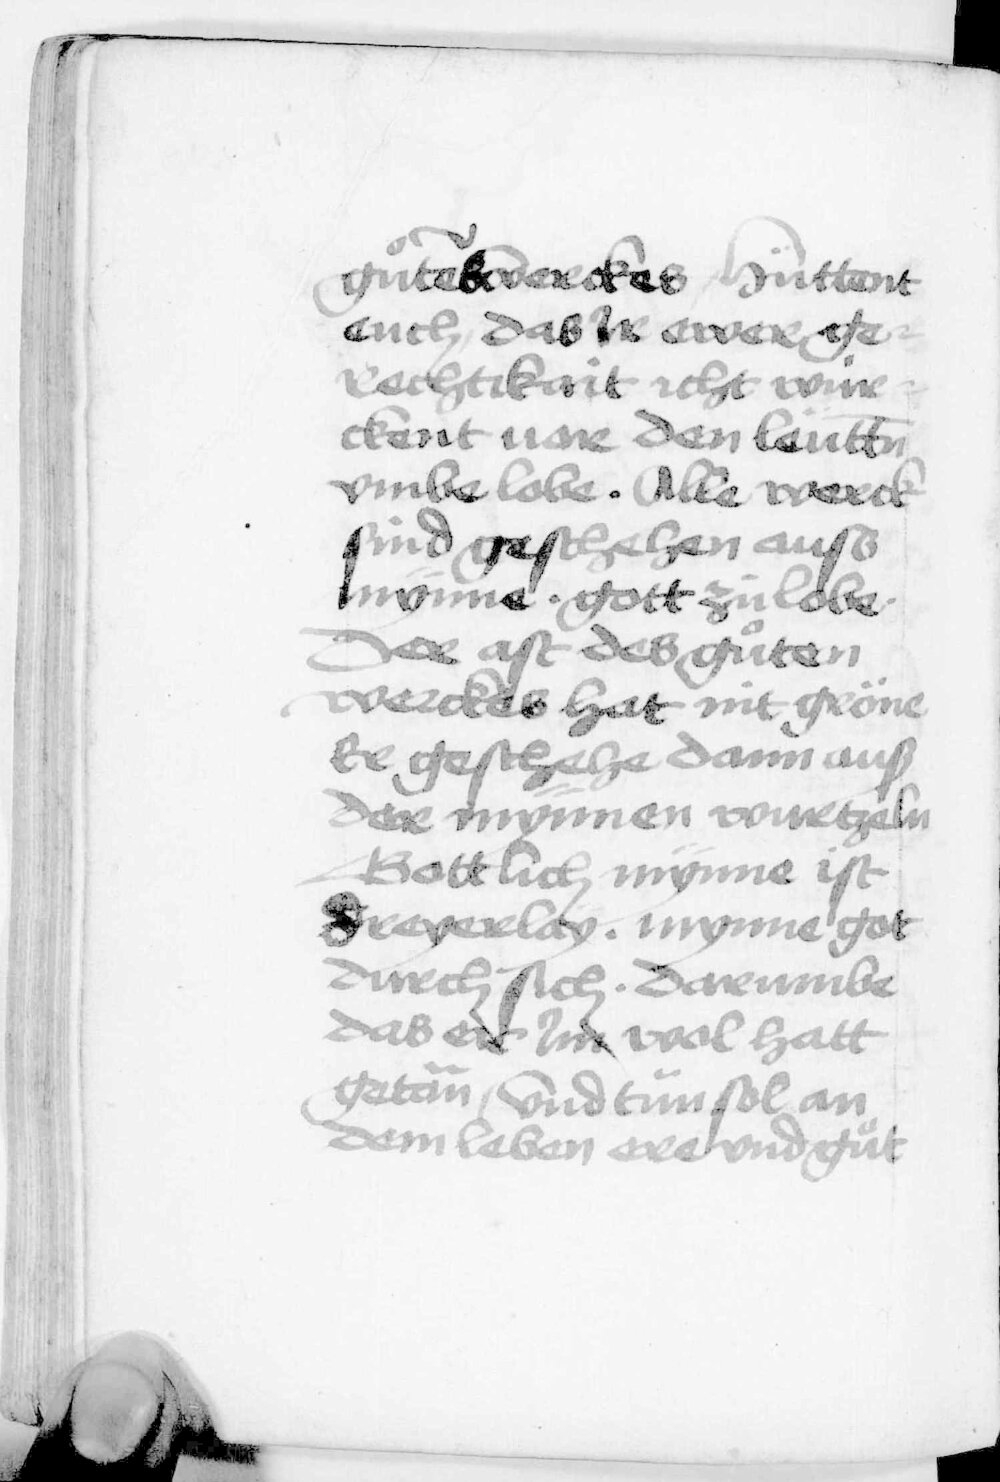 gůtes werckes Hüttent
euch, das Ir ewer ge-
rechtikait icht wür-
ckent vor den leüttn
vmbe lobe. Alle werck
sind geschehen auss
mÿnne. gott zü lobe.
Der ast des gůten
werckes hat nit gröne
Er geschehe dann auß
der mÿnnen wurtzeln
Gottlich mÿnne ist
dreyerlaÿ. mynne got
durch sich. darumbe
das er Im wol hatt
getän, vnd tün sol an
dem leben ere vnd gůt